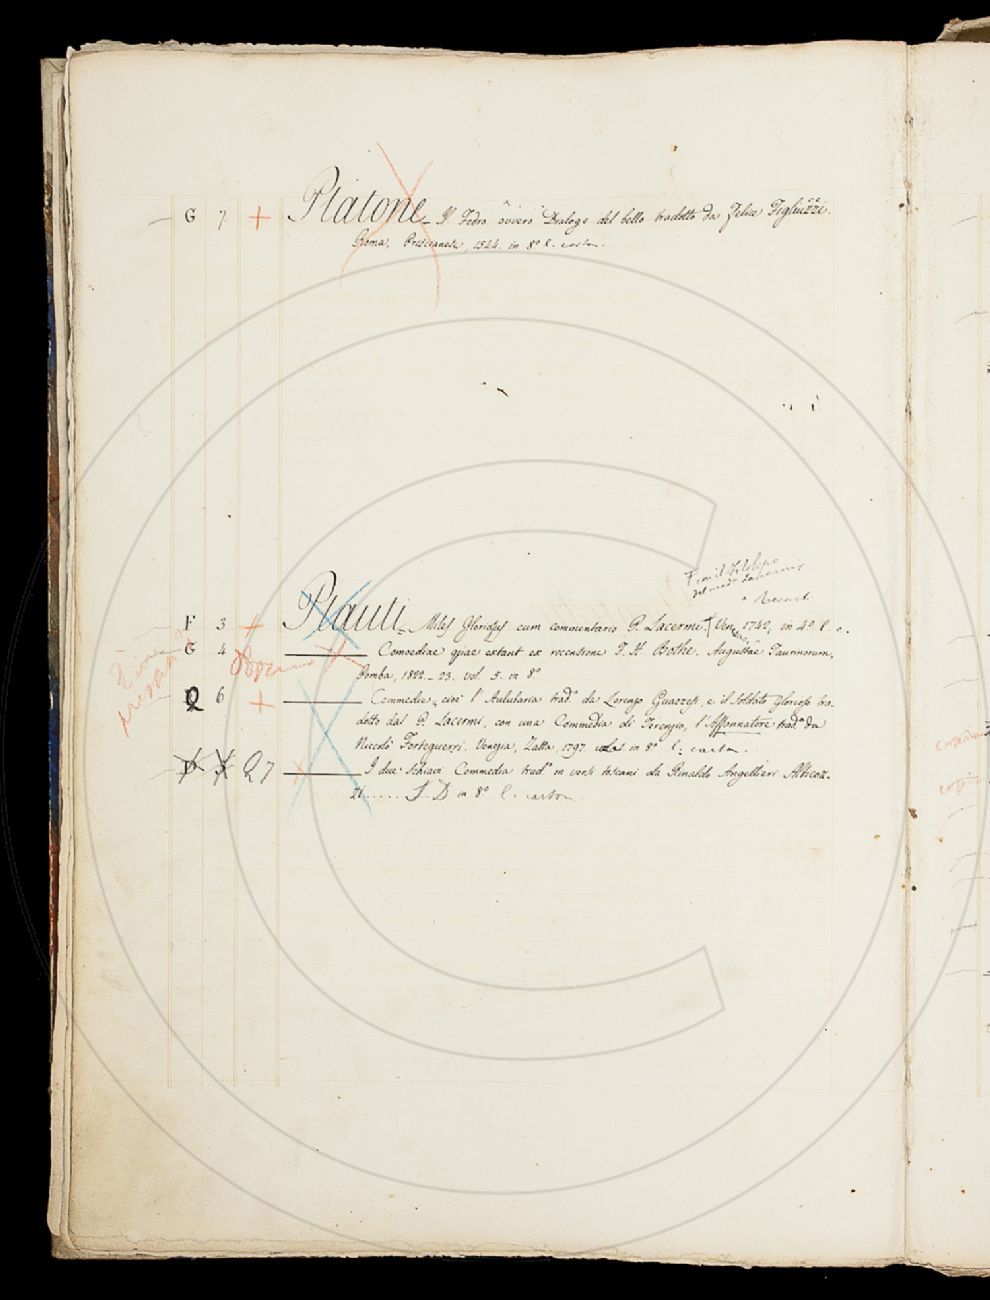 G 7 + Platone_ Il Fedro ovvero Dialogo del bello tradotto da Felice Figliuzzi.
Roma, Priscianese, 1544. in 8.º l. carton.
F 3 + Plauti_ Miles Gloriosus cum commentario P. Lacermi. Ven. 1742, in 4.º l. c.
G 4 Comoediae quae extant ex recensione F. H. Bothe. Augustae Taurinorum,
Pomba, 1822_23. vol. 5. in 8.º
Q 6 + Commedie, cioè l'Aulularia trad.ª da Lorenzo Guazzesi, e il Soldato glorioso tra-
dotto dal P. Lacermi, con una Commedia di Terenzio, l'Affannatore trad.º da
Niccolò Forteguerri. Venezia, Zatta, 1797. in 8.º l. carton.
27 + I due Schiavi Commedia trad.ª in versi toscani da Rinaldo Angellieri Alticoz-
zi...... S. D in 8.º l. carton